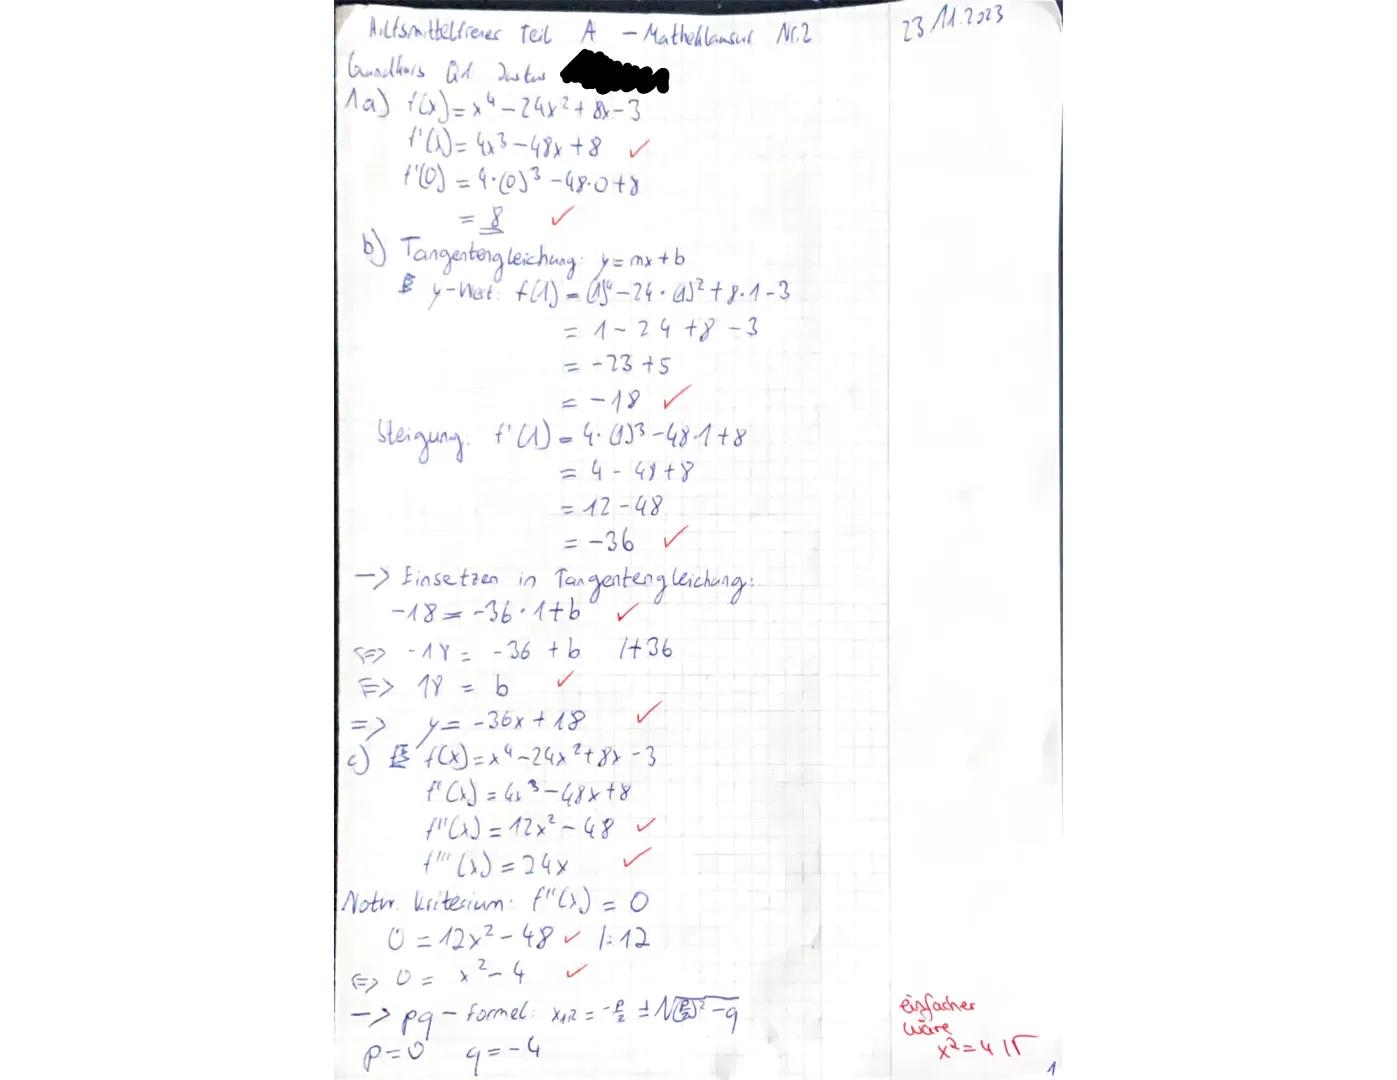 Hilfsmittelfreier Teil A – Matheklausur Nr. 2
23.11.2023
Grundkurs Q1 Justus
1a) f(x) = x⁴ – 24x² + 8x – 3
f'(x) = 4x³ – 48x + 8 ✓
f'(0) = 4·(0)³ – 48·0 + 8
= 8 ✓
b) Tangentengleichung: y = mx + b
y-Wert: f(1) = (1)⁴ – 24 · (1)² + 8·1 – 3
= 1 – 24 + 8 – 3
= –23 + 5
= –18 ✓
Steigung: f'(1) = 4·(1)³ – 48·1 + 8
= 4 – 48 + 8
= 12 – 48
= –36 ✓
–> Einsetzen in Tangentengleichung:
–18 = –36·1 + b ✓
<=> –18 = –36 + b |+36
<=> 18 = b ✓
=> y = –36x + 18 ✓
c) f(x) = x⁴ – 24x² + 8x – 3
f'(x) = 4x³ – 48x + 8
f''(x) = 12x² – 48 ✓
f'''(x) = 24x ✓
Notw. Kriterium: f''(x) = 0
0 = 12x² – 48 ✓ |:12
<=> 0 = x² – 4 ✓
–> pq-Formel: x₁,₂ = –p/2 ± √((p/2)² – q)
p = 0 q = –4
einfacher
wäre
x² = 4 |√
1